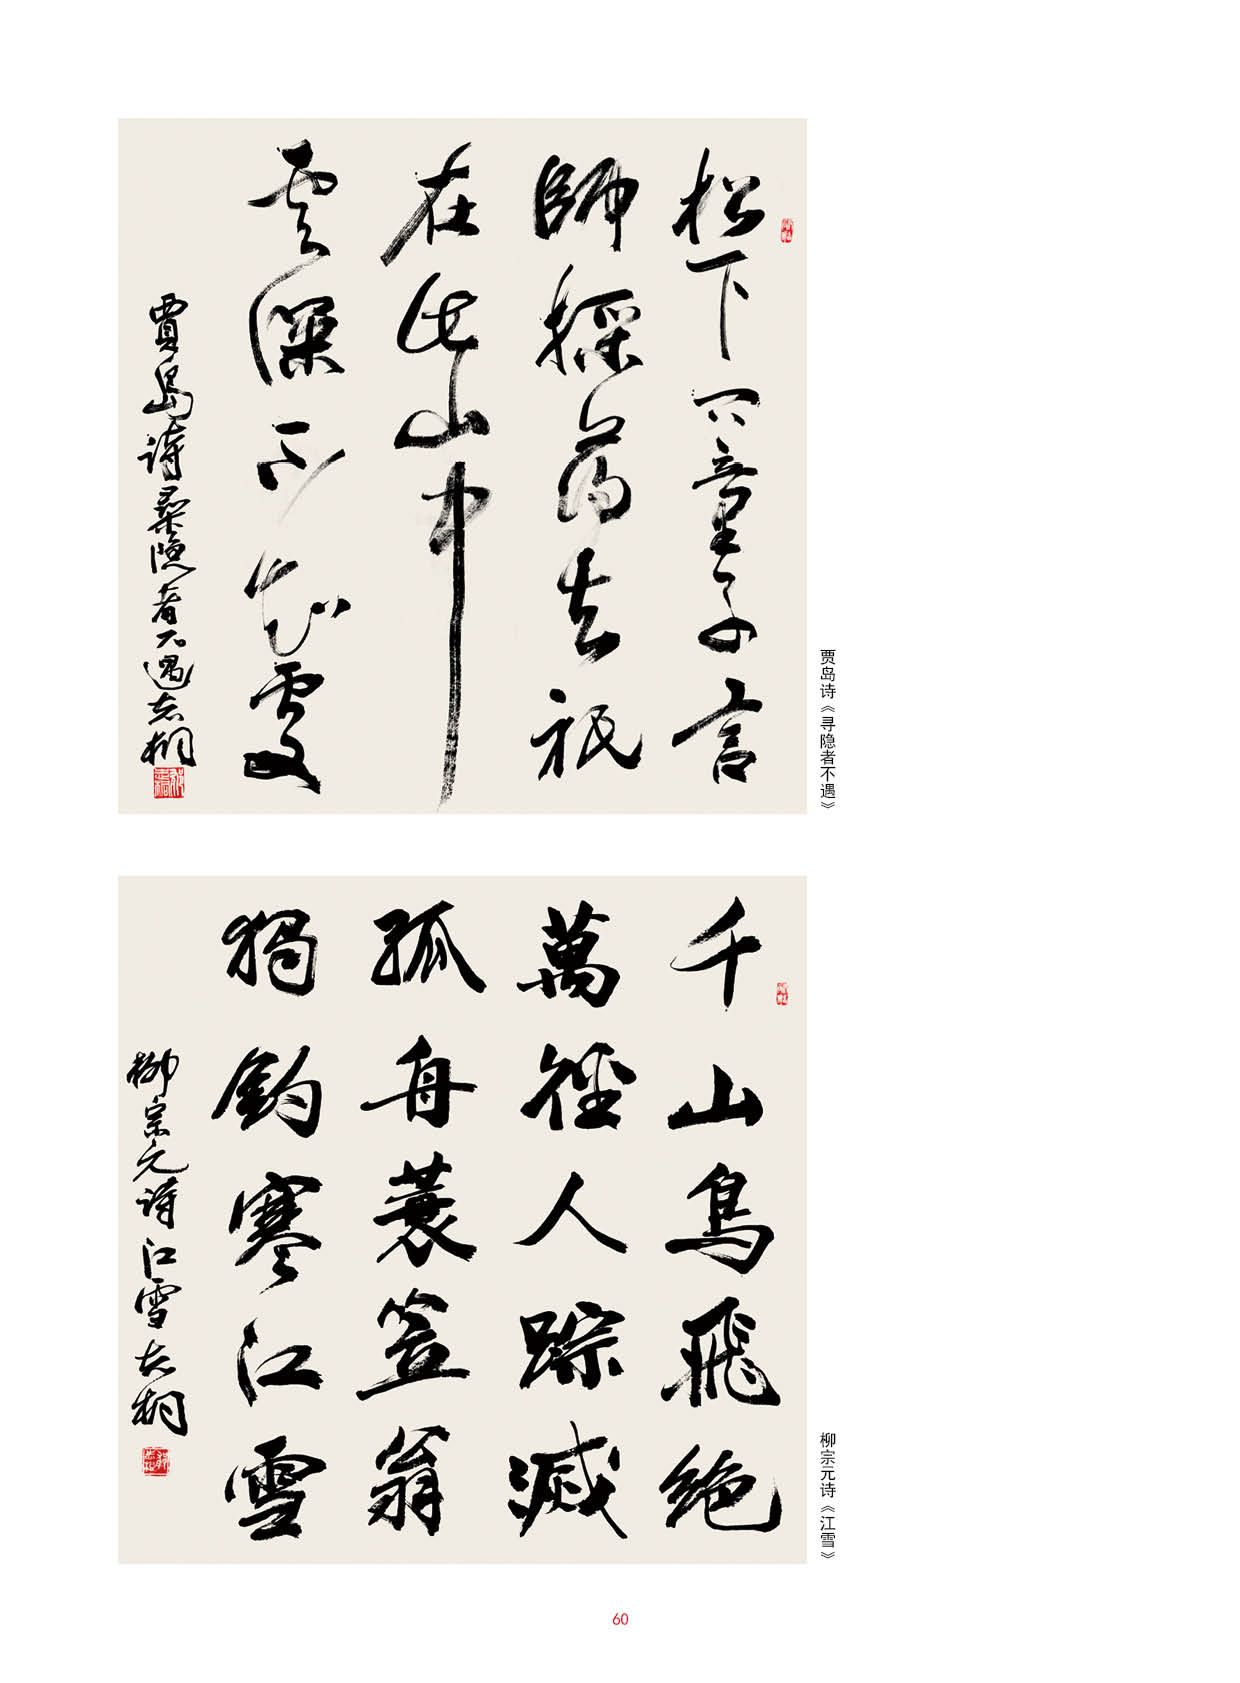 松下问童子言
師採药去祇
在此山中
雲深不知處
賈島诗尋隐者不遇志桐
贾岛诗《寻隐者不遇》
千山鳥飛绝
萬徑人踪滅
孤舟蓑笠翁
獨釣寒江雪
柳宗元诗江雪志桐
柳宗元诗《江雪》
60